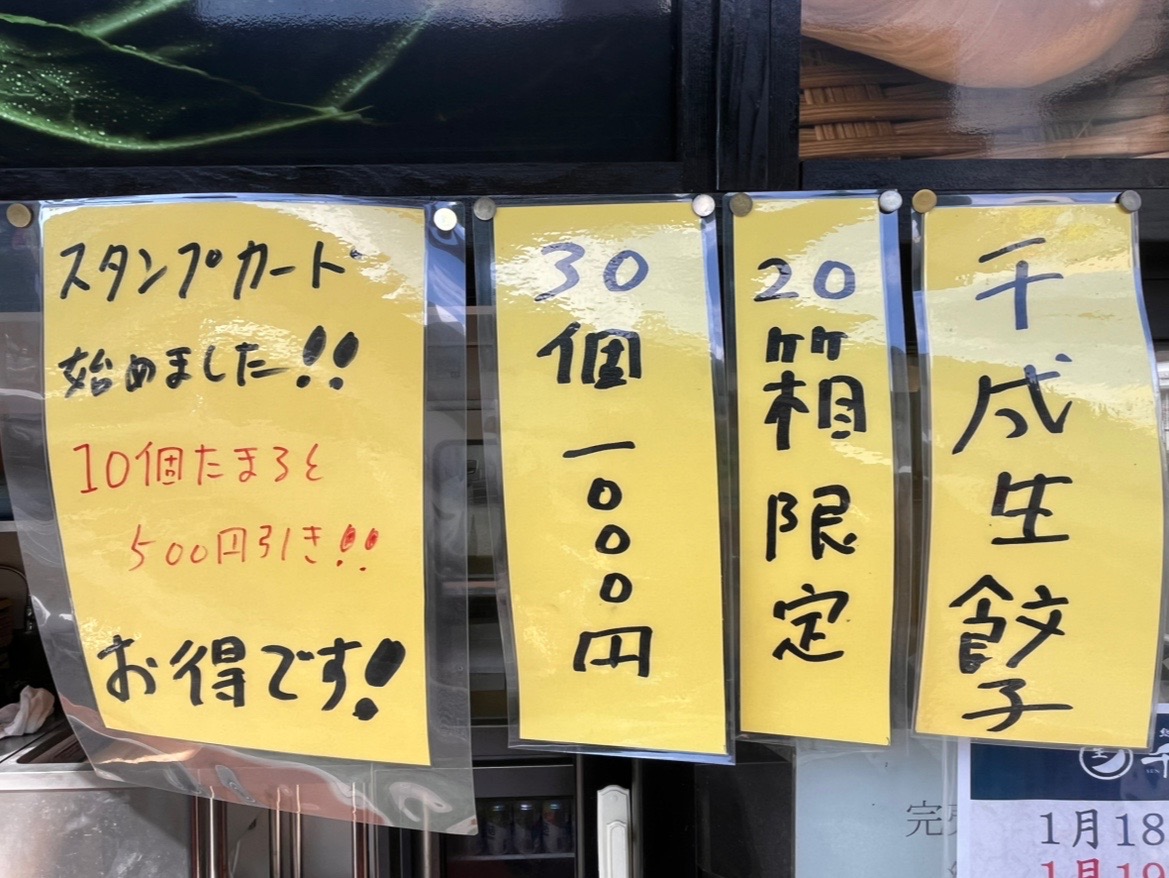 千成生餃子
20箱限定
30個一〇〇〇円
スタンプカード
始めました!!
10個たまると
500円引き!!
お得です!
完
1月18
1月19